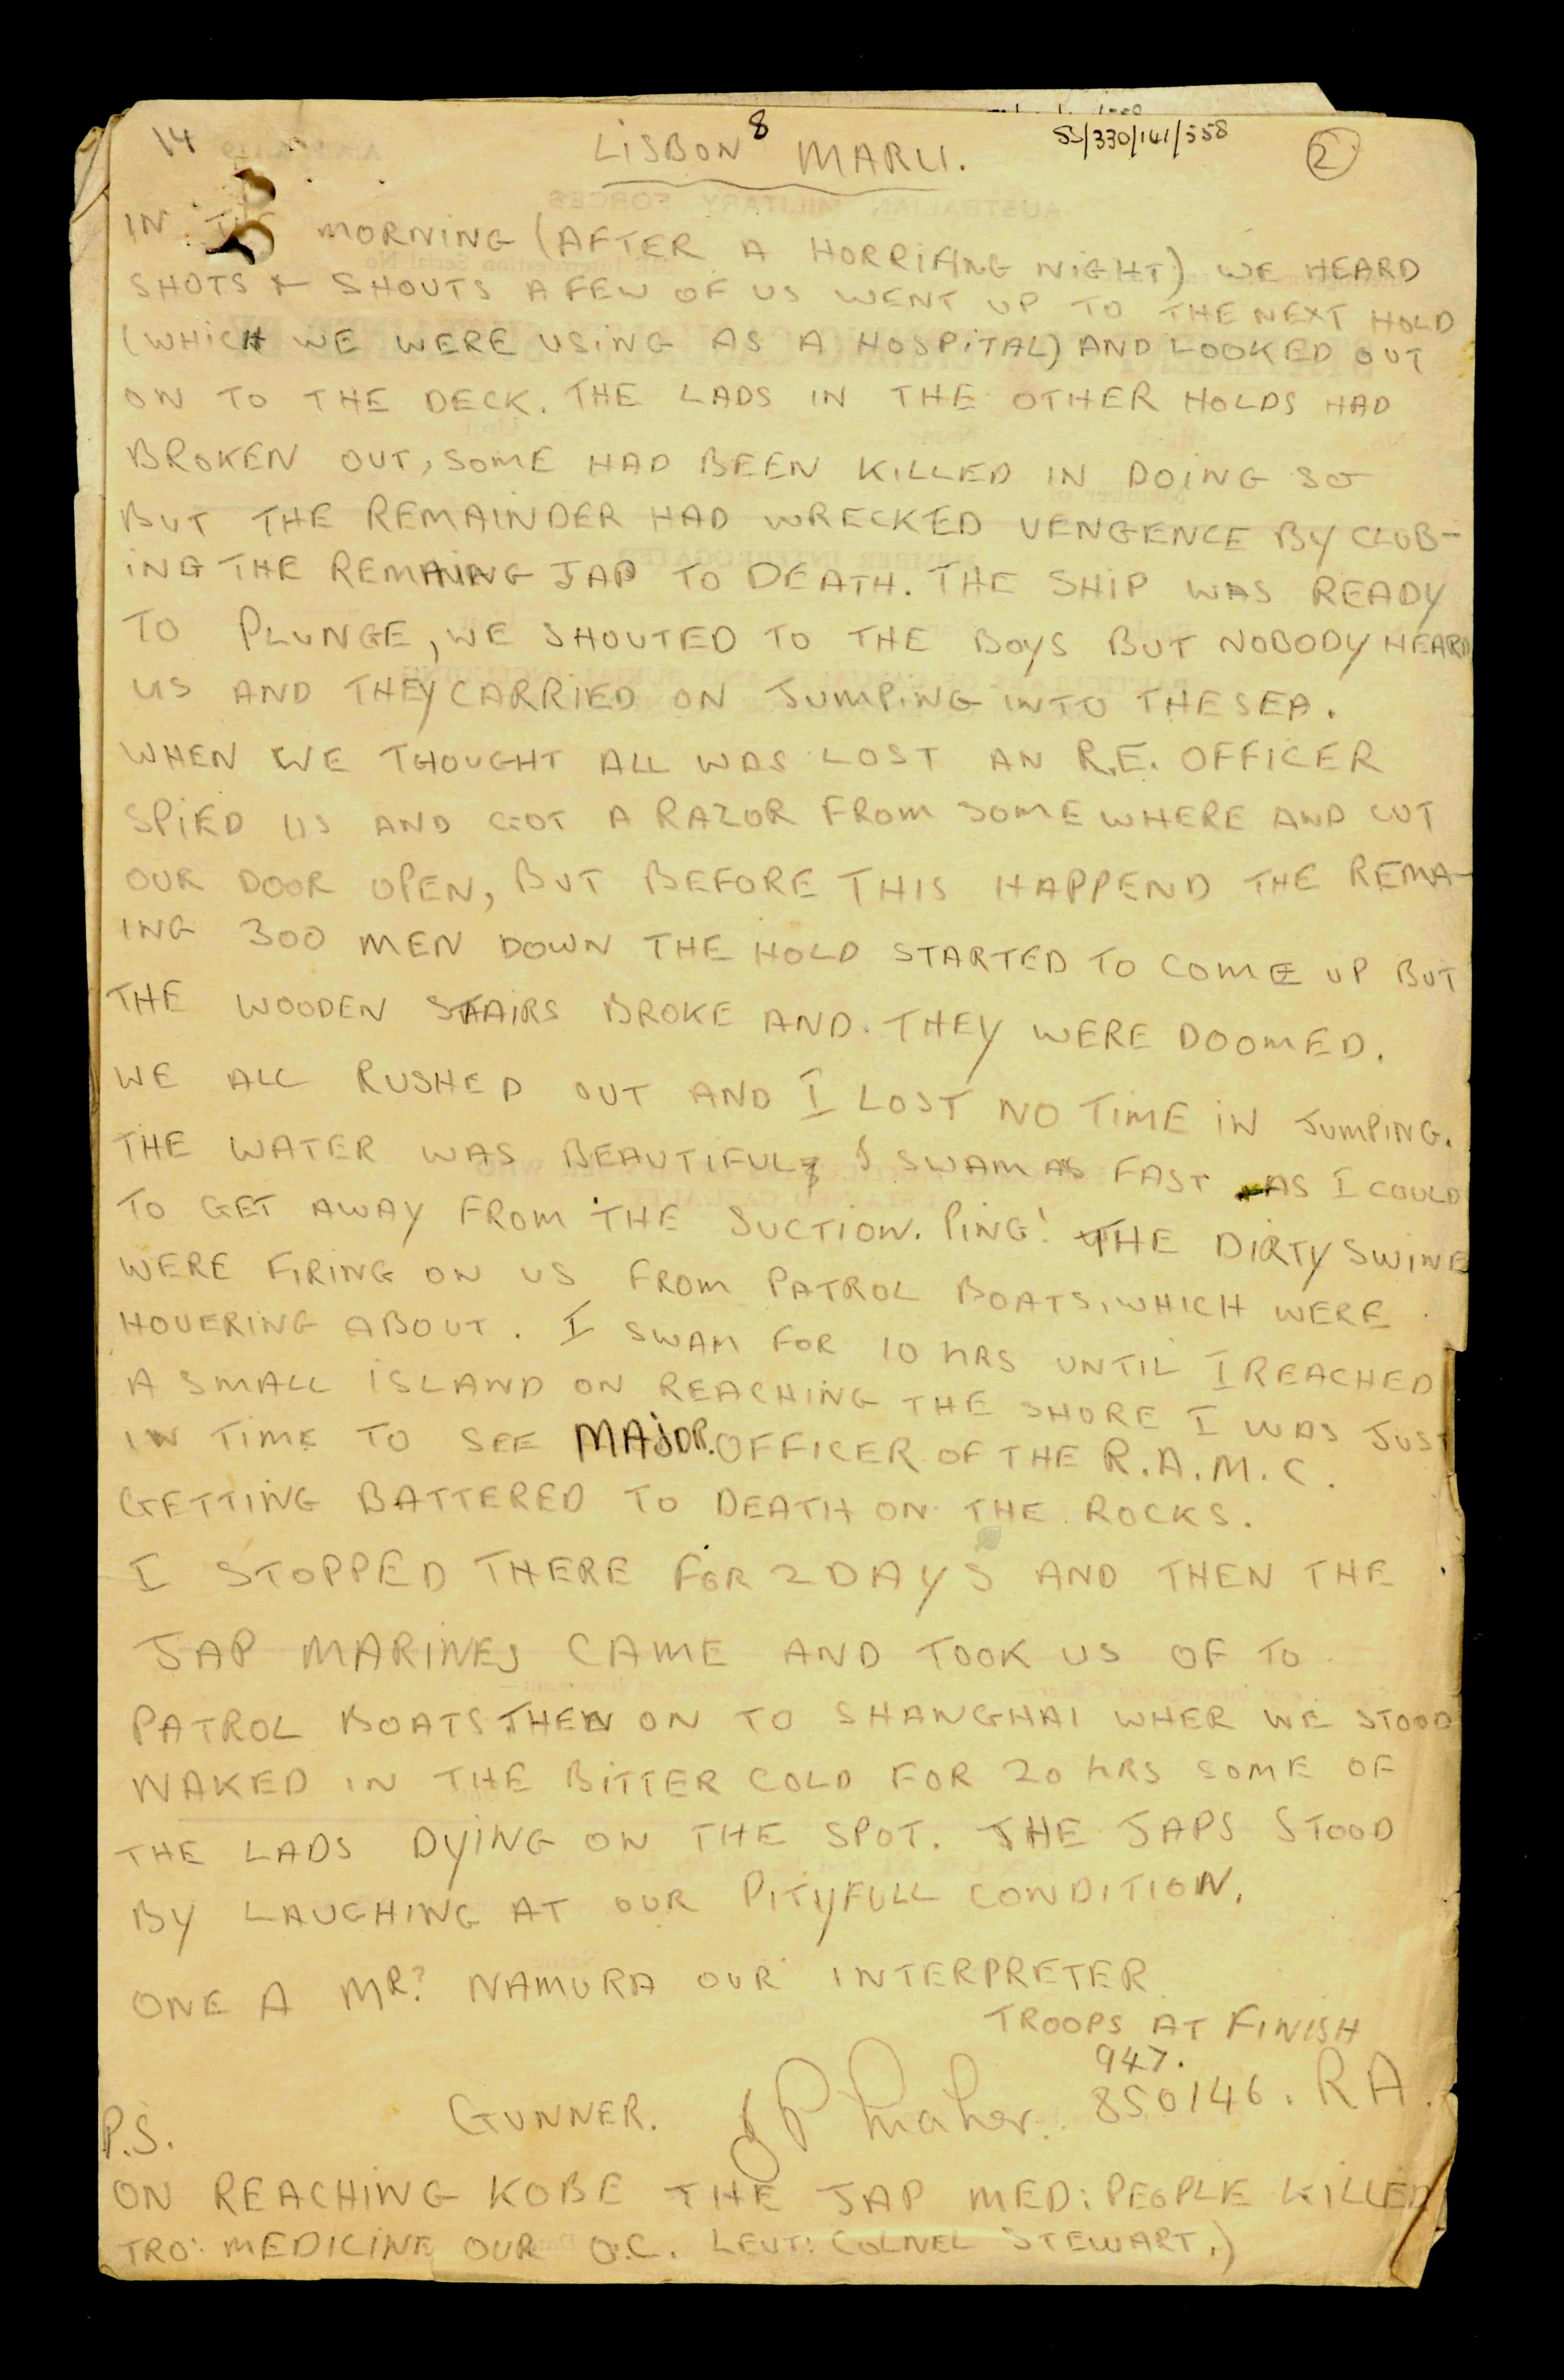 14
8
LISBON MARU.
SS/330/141/558
2
IN THE MORNING (AFTER A HORRIFING NIGHT) WE HEARD
SHOTS & SHOUTS A FEW OF US WENT UP TO THE NEXT HOLD
(WHICH WE WERE USING AS A HOSPITAL) AND LOOKED OUT
ON TO THE DECK. THE LADS IN THE OTHER HOLDS HAD
BROKEN OUT, SOME HAD BEEN KILLED IN DOING SO
BUT THE REMAINDER HAD WRECKED VENGENCE BY CLUB-
ING THE REMAING JAP TO DEATH. THE SHIP WAS READY
TO PLUNGE, WE SHOUTED TO THE BOYS BUT NOBODY HEARD
US AND THEY CARRIED ON JUMPING INTO THE SEA.
WHEN WE THOUGHT ALL WAS LOST AN R.E. OFFICER
SPIED US AND GOT A RAZOR FROM SOMEWHERE AND CUT
OUR DOOR OPEN, BUT BEFORE THIS HAPPEND THE REMA-
ING 300 MEN DOWN THE HOLD STARTED TO COME UP BUT
THE WOODEN STAIRS BROKE AND THEY WERE DOOMED.
WE ALL RUSHED OUT AND I LOST NO TIME IN JUMPING.
THE WATER WAS BEAUTIFUL, I SWAM AS FAST AS I COULD
TO GET AWAY FROM THE SUCTION. PING! THE DIRTY SWINE
WERE FIRING ON US FROM PATROL BOATS, WHICH WERE
HOVERING ABOUT. I SWAM FOR 10 HRS UNTIL I REACHED
A SMALL ISLAND ON REACHING THE SHORE I WAS JUST
IN TIME TO SEE MAJOR. OFFICER OF THE R.A.M.C.
GETTING BATTERED TO DEATH ON THE ROCKS.
I STOPPED THERE FOR 2 DAYS AND THEN THE
JAP MARINES CAME AND TOOK US OF TO
PATROL BOATS THEN ON TO SHANGHAI WHER WE STOOD
NAKED IN THE BITTER COLD FOR 20 HRS SOME OF
THE LADS DYING ON THE SPOT. THE JAPS STOOD
BY LAUGHING AT OUR PITYFULL CONDITION.
ONE A MR? NAMURA OUR INTERPRETER
TROOPS AT FINISH
947.
GUNNER. J P Maher. 850146. RA.
P.S.
ON REACHING KOBE THE JAP MED: PEOPLE KILLED
TRO: MEDICINE OUR O.C. LEUT: COLNEL STEWART.)